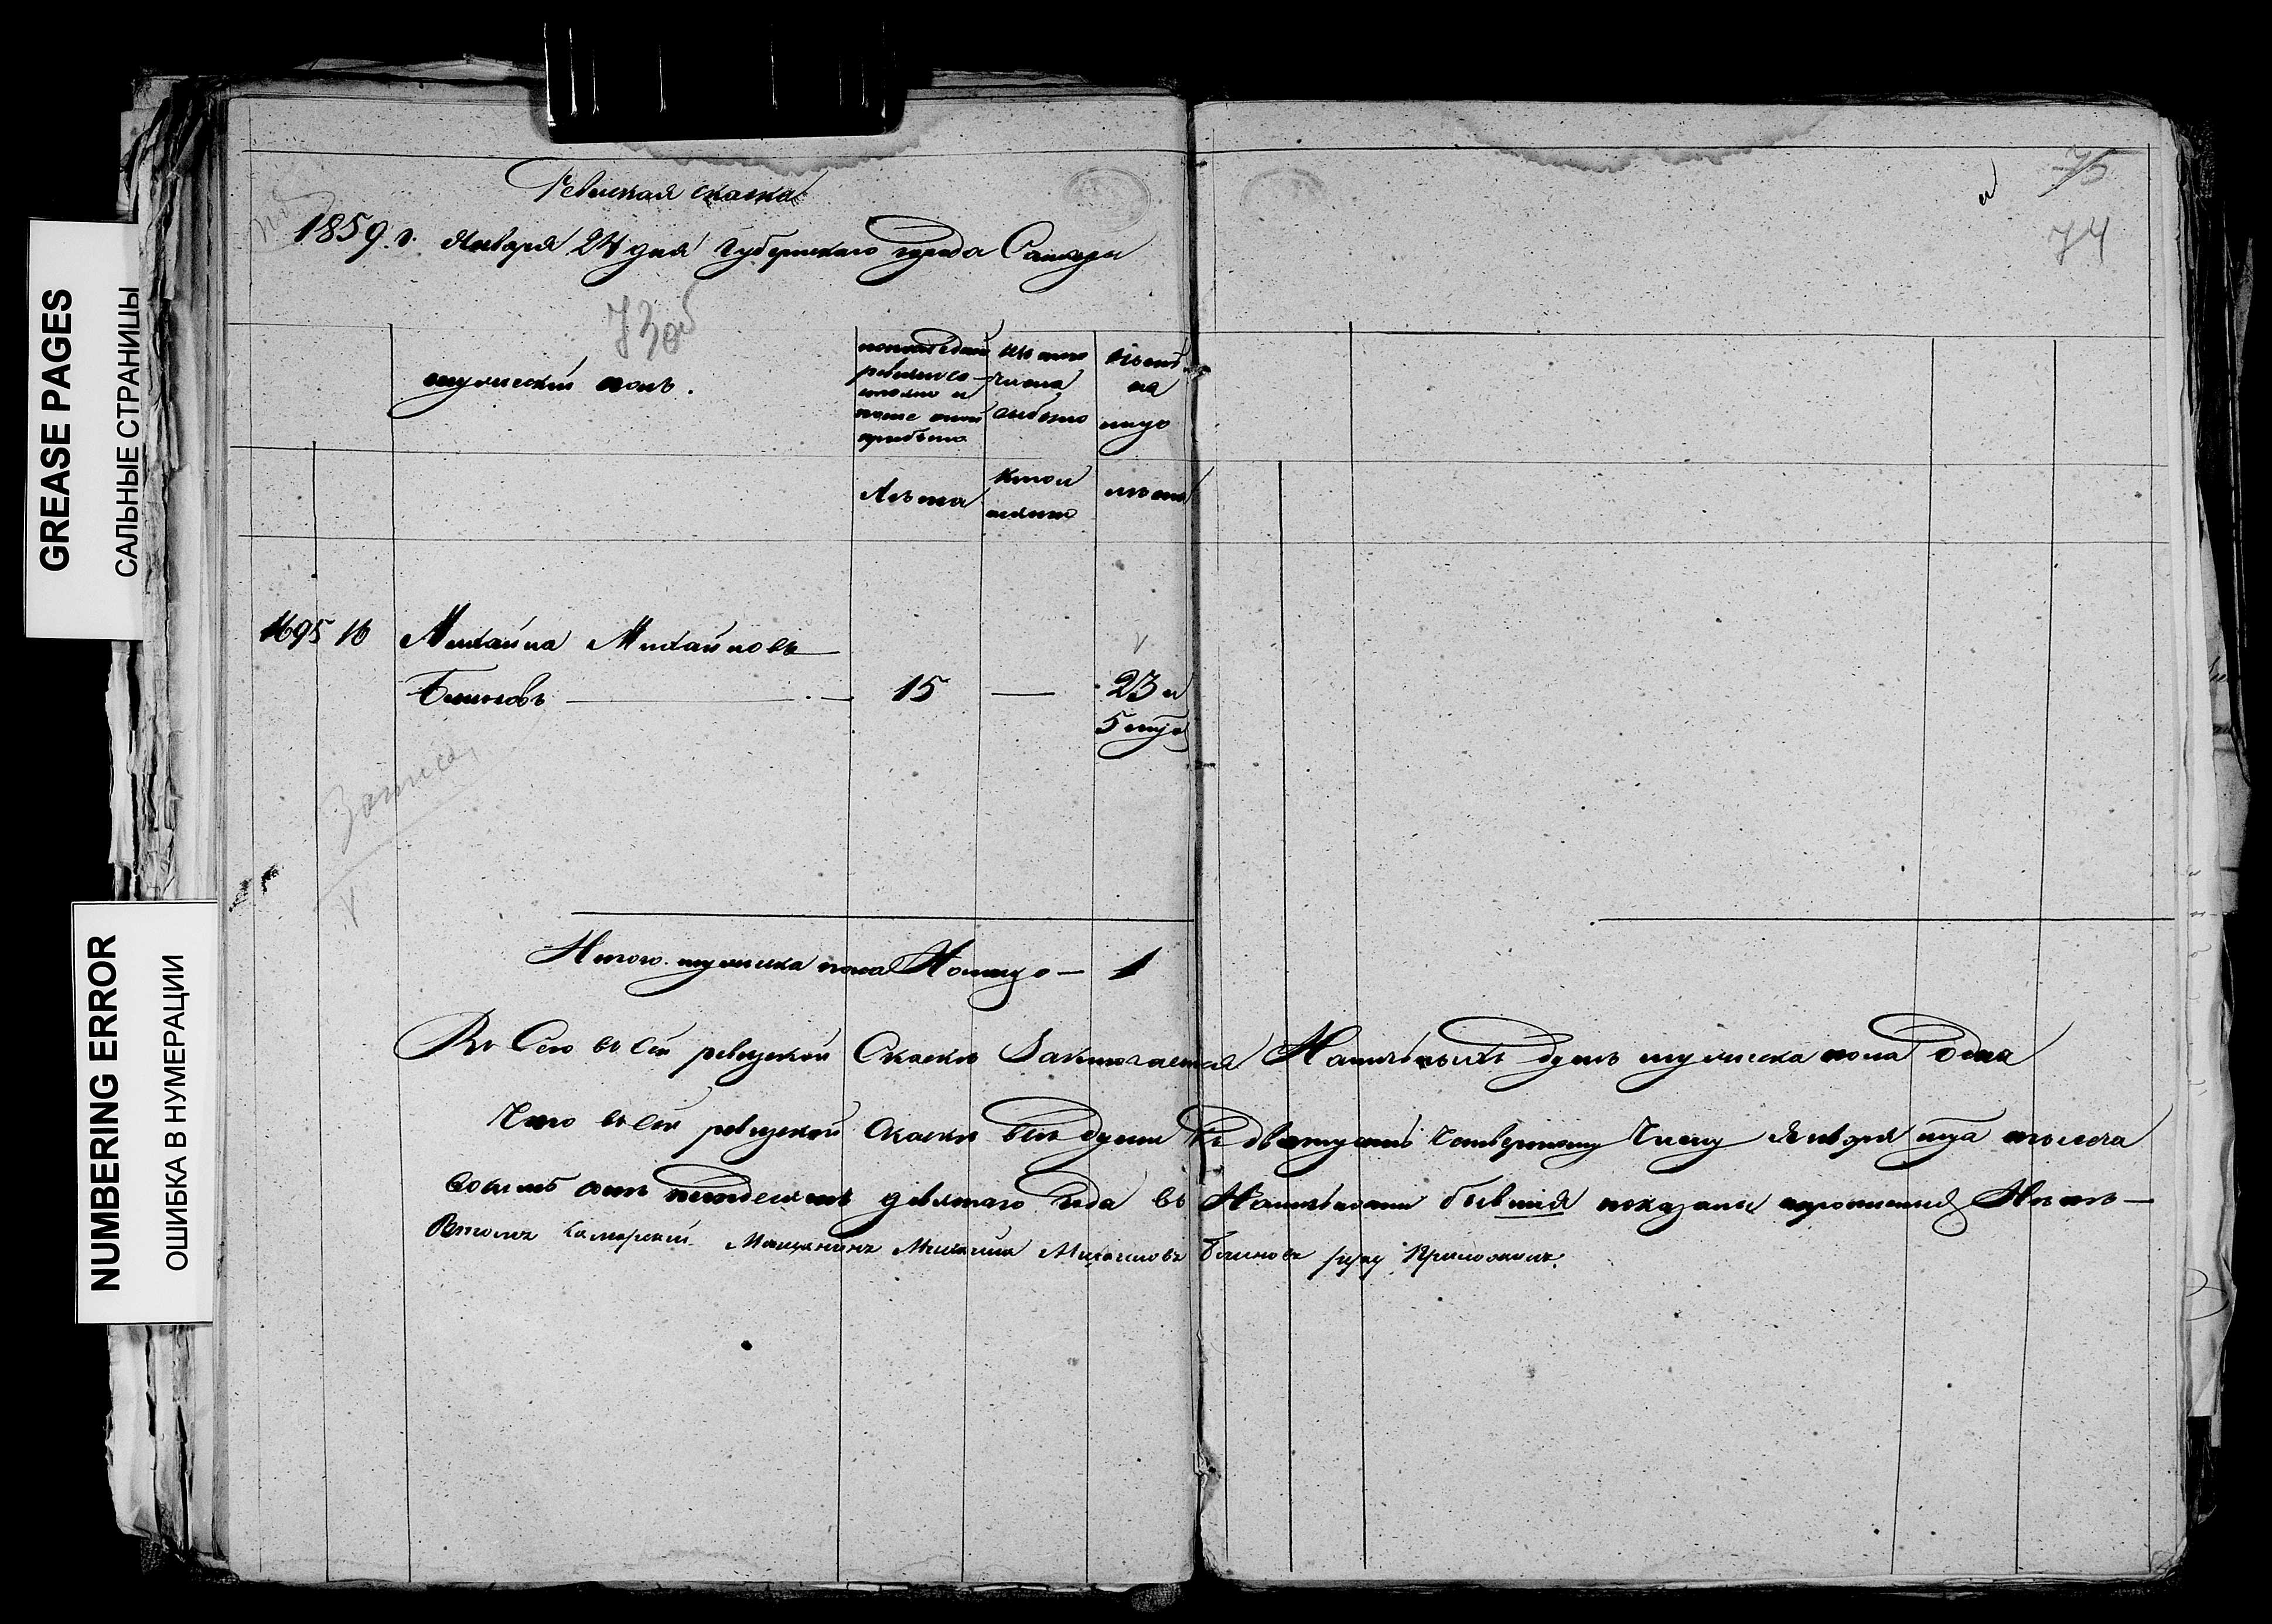 GREASE PAGES
САЛЬНЫЕ СТРАНИЦЫ
NUMBERING ERROR
ОШИБКА В НУМЕРАЦИИ
Ревизская сказка
1859 г. Января 24 дня Губернскаго города Самары
73об
75
74
мужеский полъ.
по последней ревизии состояло и после оной прибыло
изъ того числа выбыло
ныне на лицо
Лѣта
Когда именно
лѣта
1695 16 Михайла Михайловъ
Блиновъ — 15 — 23 и
5 мѣс
Итого мужеска пола Налицо — 1
Всего въ сей ревизской Сказке Заключается Наличныхъ душъ мужеска пола Одна
Что въ сей ревизской Сказке все души къ двадцать четвертому Числу Января м-ца тысяча
восемь сотъ пятьдесятъ девятаго года въ Наличности бывшия показаны прописныхъ Нѣтъ —
Въ томъ Самарский Мещанинъ Михаила Михайловъ Блиновъ руку Приложилъ.